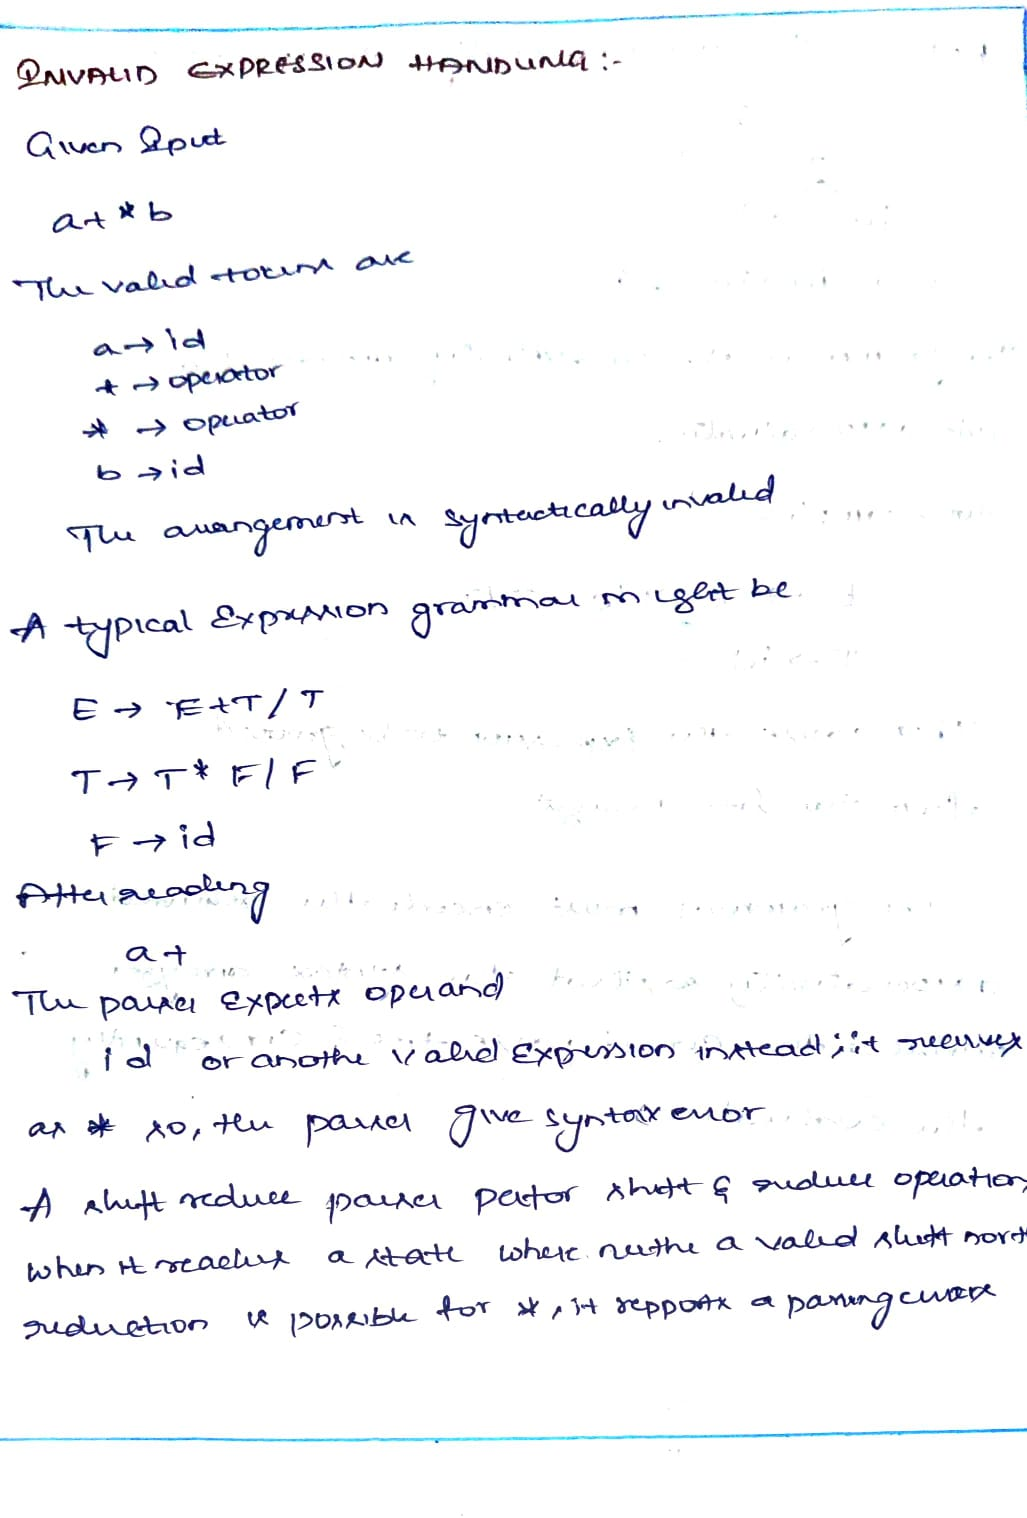 INVALID EXPRESSION HANDLING :-
Given Input
a+ * b
The valid tokens are
a → id
+ → operator
* → operator
b → id
The arrangement is syntactically invalid
A typical Expression grammar might be
E → E+T/T
T → T* F/F
F → id
After reading
a +
The parser Expects operand
id or anothe valid Expression instead ; it receives
as * so, the parser give syntax error
A shift reduce parser perfor shift & reduce operation,
when it reaches a state where neithe a valid shift nor
reduction is possible for *, it repports a parsing